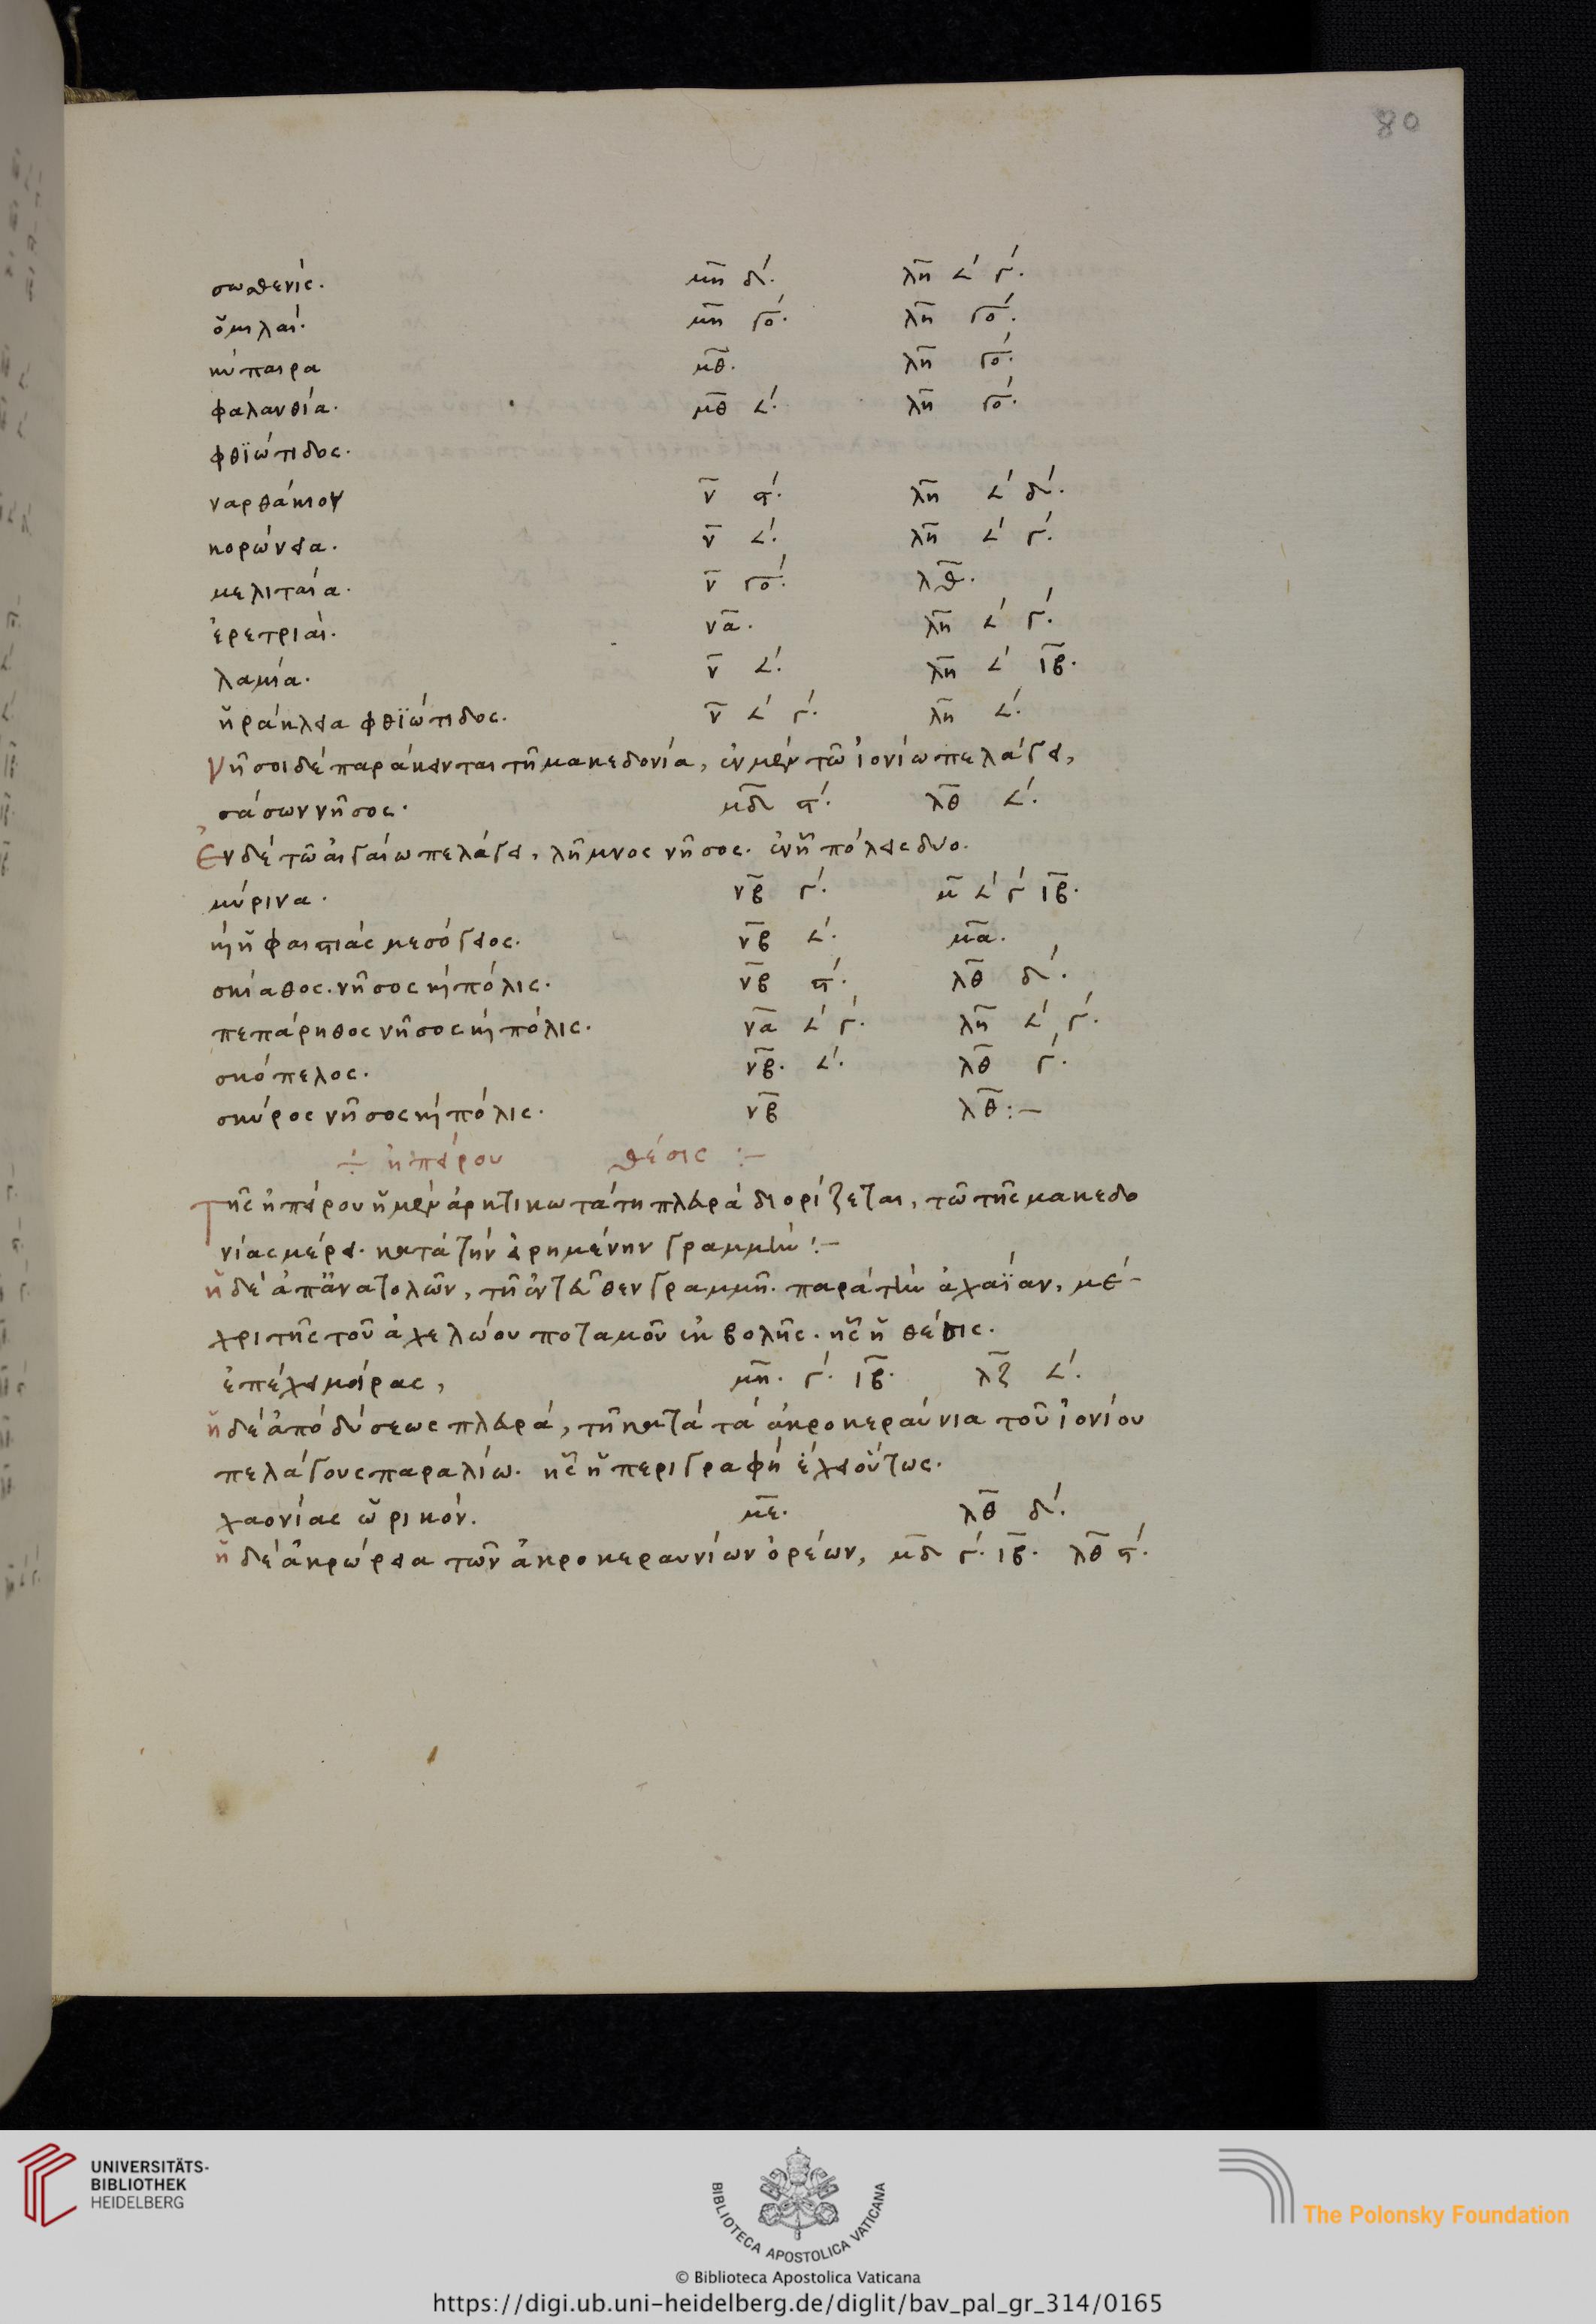 80
σωσθενίς. μη δ´. λη 𐅵´ γ´.
ὅμιλαι. μη γο´. λη γο´.
κύπαιρα μθ. λη γο´.
φαλανθία. μθ 𐅵´. λη γο´.
φθϊώτιδος.
ναρθάκιον ν ϛ´. λη 𐅵´ δ´.
κορώνεια. ν 𐅵´. λη 𐅵´ γ´.
μελιταία. ν γο´. λθ.
ἐρετριαί. να. λη 𐅵´ γ´.
λαμία. ν 𐅵´. λη 𐅵´ ιβ.
ἡράκλεια φθϊώτιδος. ν 𐅵´ γ´. λη 𐅵´.
Νῆσοι δέ παράκεινται τῆ μακεδονία, ἐν μέν τῶ ἰονίω πελάγει,
σάσων νῆσος. μδ ϛ´. λθ 𐅵´.
Ἐν δέ τῶ αἰγαίω πελάγει, λῆμνος νῆσος. ἐν ἧ πόλεις δυο.
μύρινα. νβ γ´. μ 𐅵´ γ´ ιβ.
καί ἡφαιστιάς μεσόγειος. νβ 𐅵´. μα.
σκίαθος. νῆσος καί πόλις. νβ ϛ´. λθ δ´.
πεπάρηθος νῆσος καί πόλις. να 𐅵´ γ´. λη 𐅵´ γ´.
σκόπελος. νβ. 𐅵´. λθ γ´.
σκύρος νῆσος καί πόλις. νβ λθ:–
÷ ἠπείρου θέσις :–
Τῆς ἠπείρου ἡ μέν ἀρκτικωτάτη πλευρά διορίζεται, τῶ τῆς μακεδο
νίας μέρει. κατά τήν εἰρημένην γραμμήν :–
ἡ δέ ἀπ ἀνατολῶν, τῆ ἐντεῦθεν γραμμῆ. παρά τήν ἀχαϊαν, μέ-
χρι τῆς τοῦ ἀχελώου ποταμοῦ ἐκβολῆς. ἧς ἡ θέσις.
ἐπέχει μοίρας, μη. γ´. ιβ. λζ 𐅵´.
ἡ δέ ἀπό δύσεως πλευρά, τῆ κατά τά ἀκροκεραύνια τοῦ ἰονίου
πελάγους παραλίω. ἧς ἡ περιγραφή ἔχει οὕτως.
χαονίας ὠρικόν. με. λθ δ´.
ἡ δέ ἀκρώρεια τῶν ἀκροκεραυνίων ὀρέων, μδ γ´. ιβ. λθ ϛ´.
UNIVERSITÄTS-
BIBLIOTHEK
HEIDELBERG
BIBLIOTECA APOSTOLICA VATICANA
The Polonsky Foundation
© Biblioteca Apostolica Vaticana
https://digi.ub.uni-heidelberg.de/diglit/bav_pal_gr_314/0165